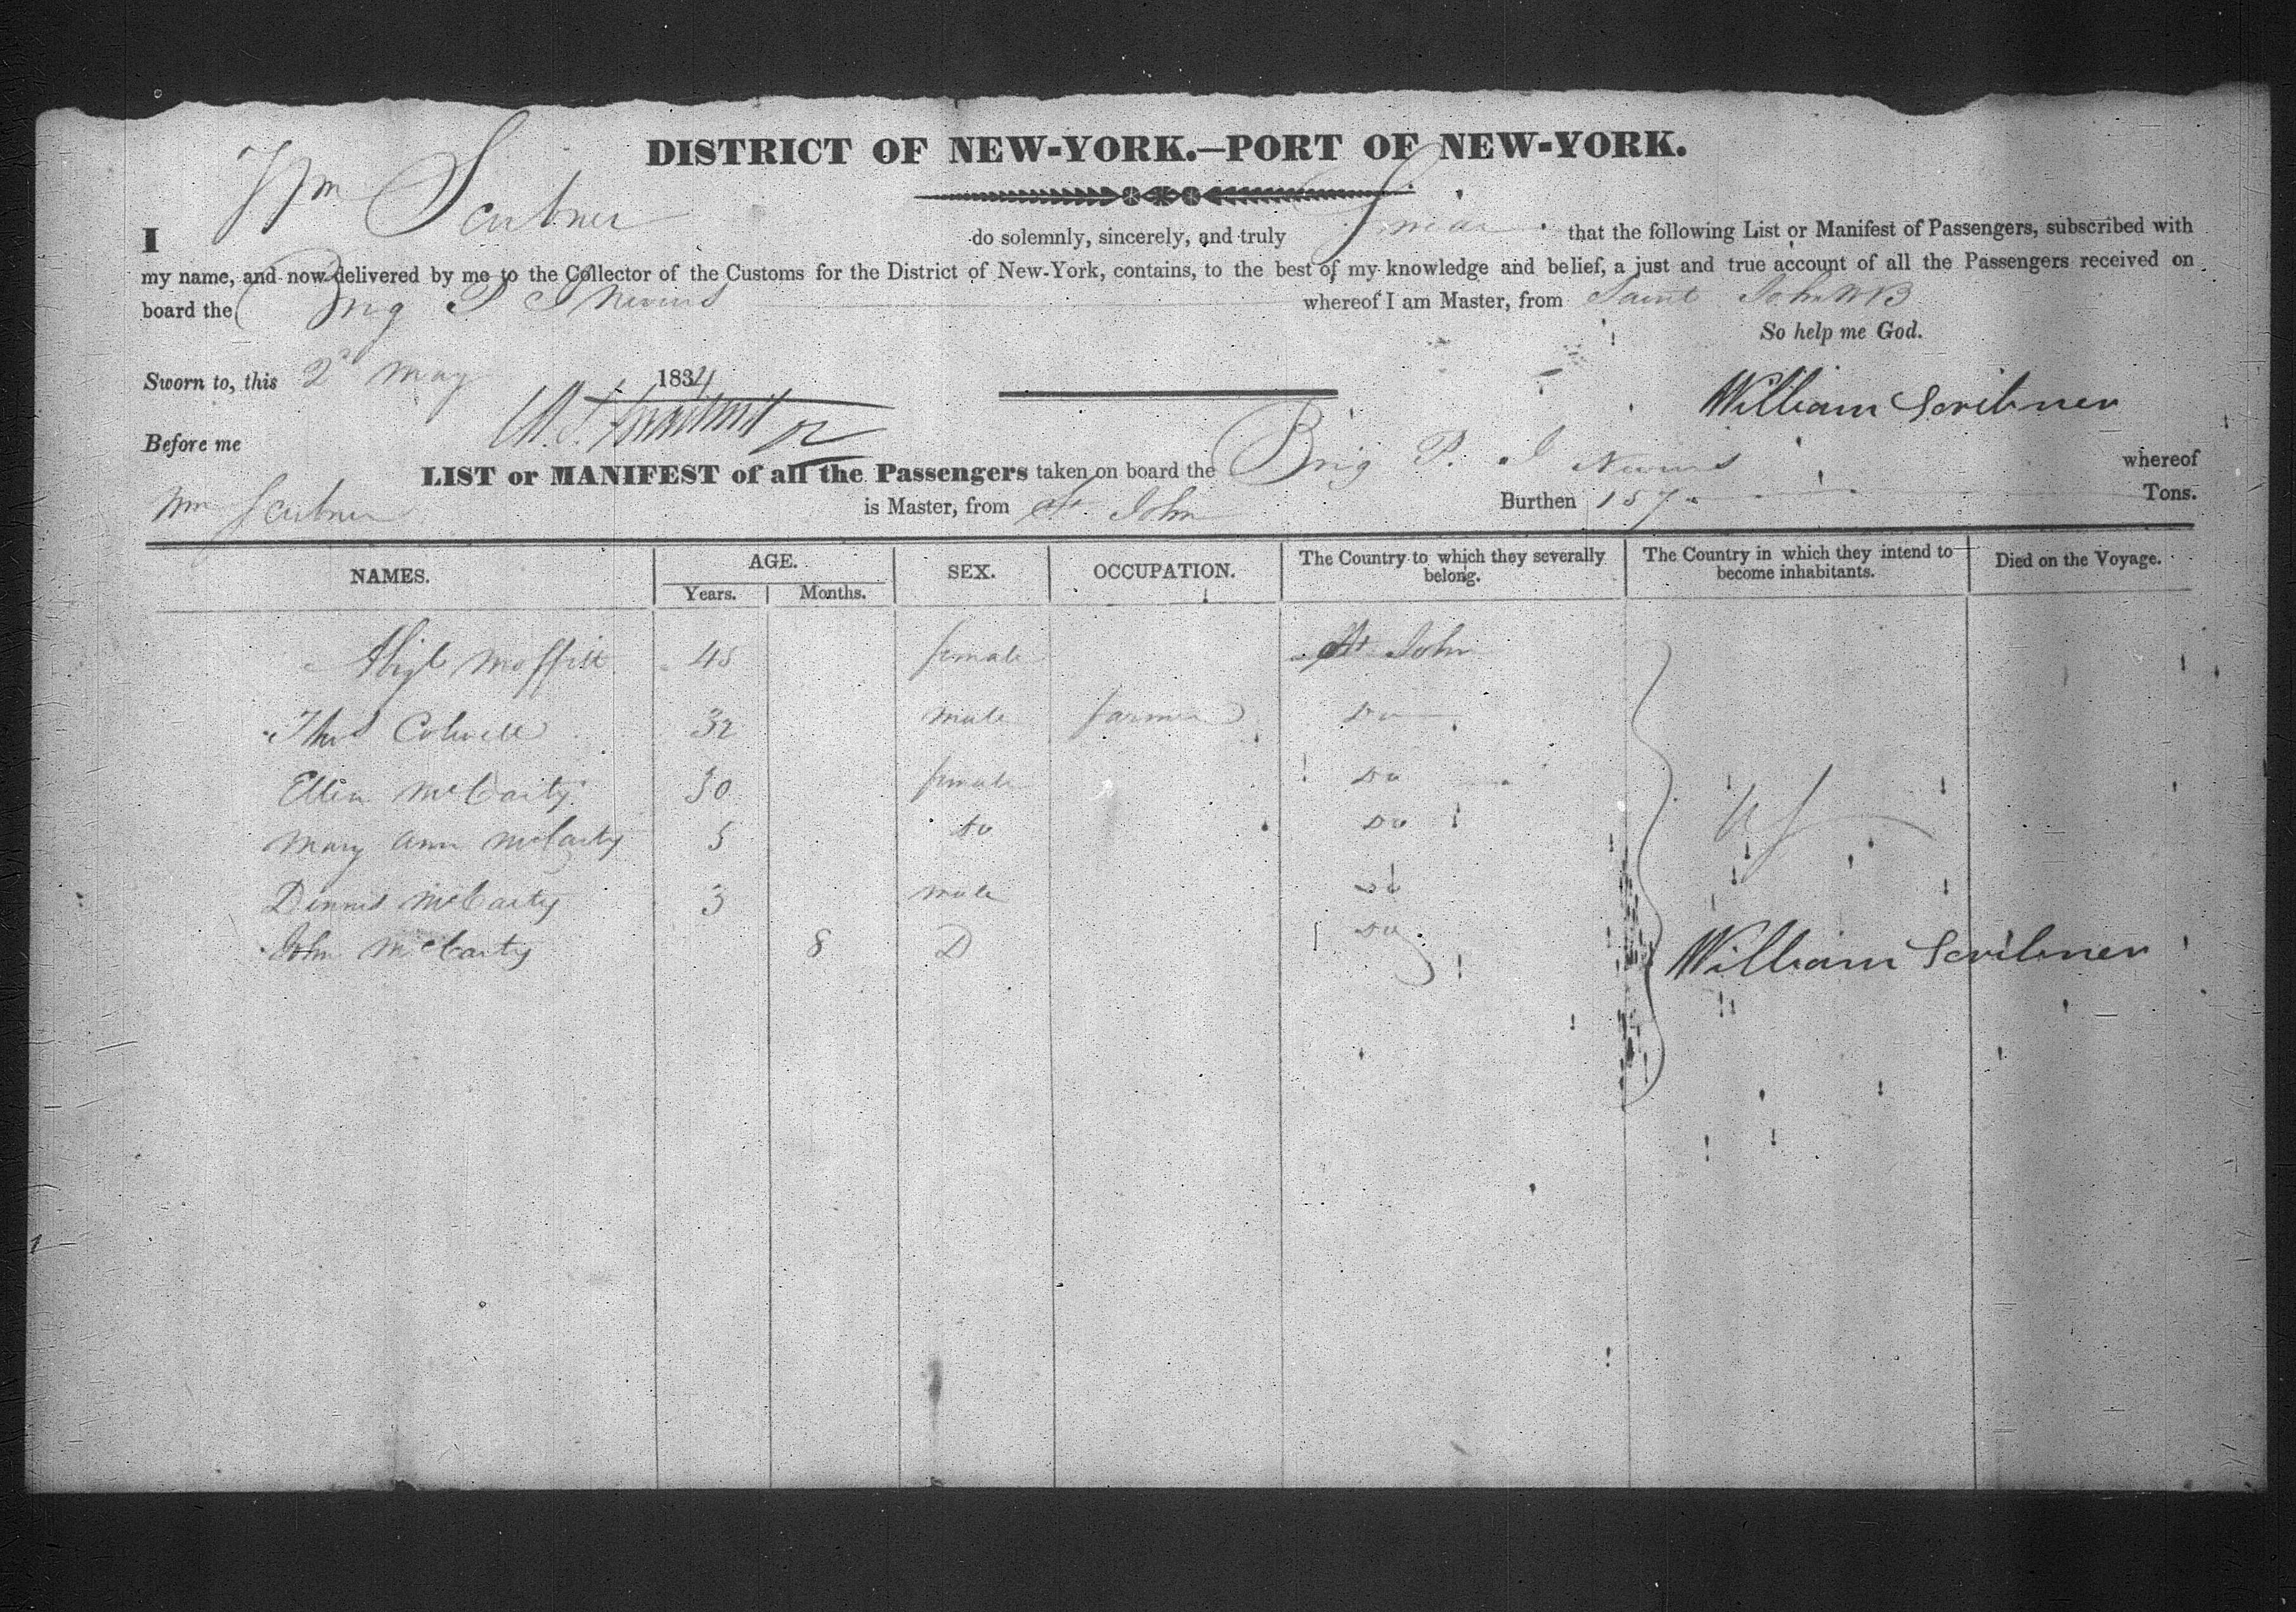 DISTRICT OF NEW-YORK.—PORT OF NEW-YORK.
I Wm Scribner do solemnly, sincerely, and truly Swear that the following List or Manifest of Passengers, subscribed with
my name, and now delivered by me to the Collector of the Customs for the District of New-York, contains, to the best of my knowledge and belief, a just and true account of all the Passengers received on
board the Brig P I Nevins whereof I am Master, from Saint John NB
So help me God.
Sworn to, this 2d May 1834
William Scribner
Before me
LIST or MANIFEST of all the Passengers taken on board the Brig P. I Nevins whereof
Wm Scribner is Master, from St. John Burthen 157 Tons.
NAMES. AGE. SEX. OCCUPATION. The Country to which they severally belong. The Country in which they intend to become inhabitants. Died on the Voyage.
Years. Months.
Abigl Moffitt 45 female St John
Thos Colwell 32 male farmer Do
Ellen McCarty 30 female Do
Mary Ann McCarty 5 do Do US
Dennis McCarty 3 male Do
John McCarty 8 D Do
William Scribner